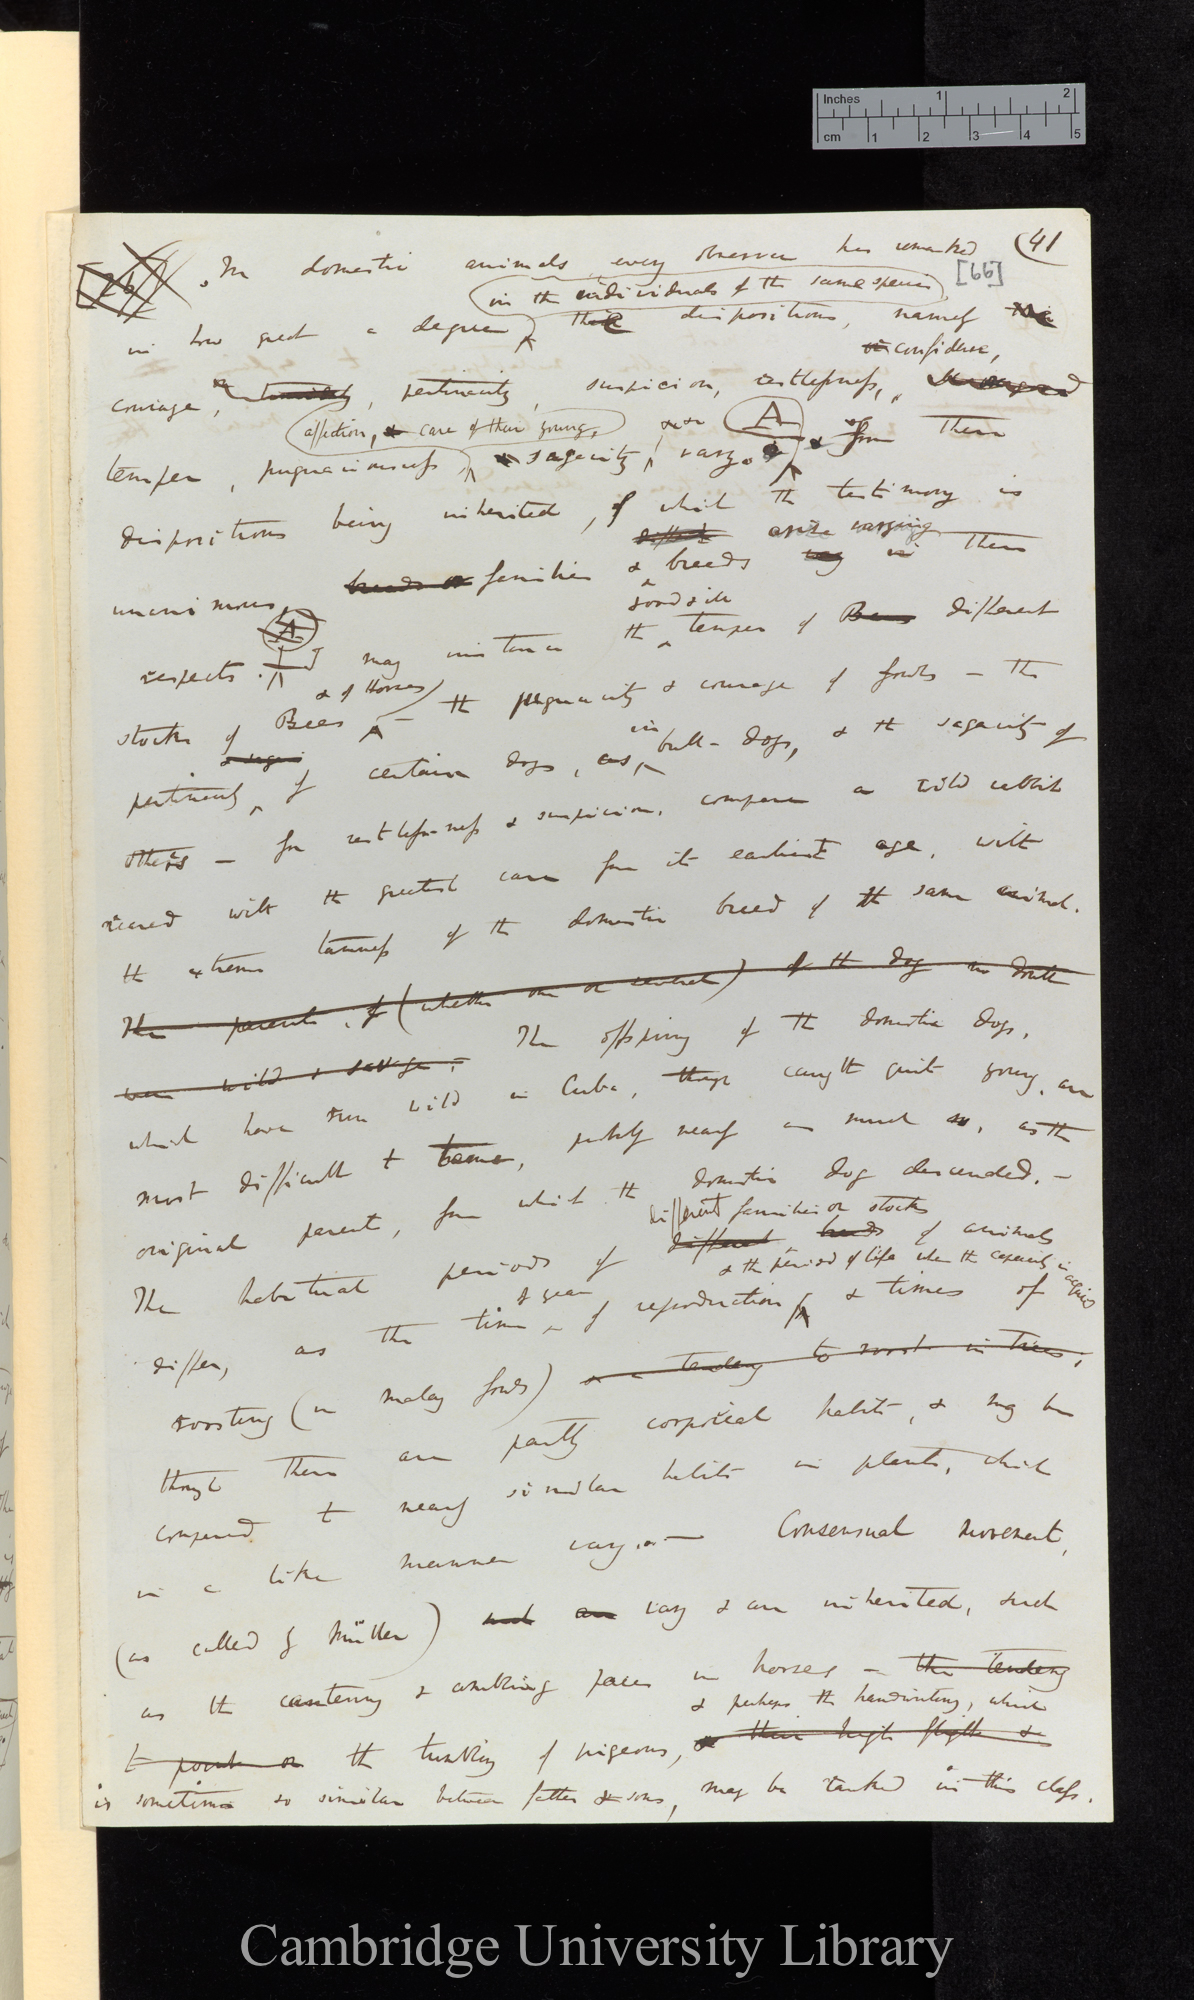 Inches 1 2
cm 1 2 3 4 5
(41
[66]
In domestic animals every observer has remarked
in the individuals of the same species
in how great a degree, the dispositions, namely
confidence,
courage, timidity, pertinacity, suspicion, restlessness,
affection, & care of their young, &c &c A
temper, pugnaciousness, & sagacity, vary. & for These
dispositions being inherited, of which the testimony is
different varying
unanimous, breeds or families & breeds vary in these
A good & ill
respects. I may instance the temper of Bees different
& of Horses)
stocks of Bees – the pugnacity & courage of fowls – the
& saga in
pertinacity of certain dogs, as bull-dogs, & the sagacity of
others – for restlessness & suspicion, compare a wild rabbit
reared with the greatest care from its earliest age, with
the extreme tameness of the domestic breed of the same animal.
The parents, of (whether one or several) of the dog no doubt
were wild & savage; The offspring of the domestic dogs,
which have run wild in Cuba, though caught quite young, are
most difficult to tame, probably nearly as much so, as the
original parent, from which the domestic dog descended. –
different families or stocks
The habitual periods of different breeds of animals
of year & the period of life when the capacity is acquired
differ, as the time of reproduction, & times of
roosting (in malay fowls) & a tendency to roost in trees,
though these are partly corporeal habits, & may be
compared to nearly similar habits in plants, which
in a like manner vary. – Consensual movement,
(as called by Müller) such are vary & are inherited, such
as the cantering & ambling paces in horses – the tendency
& perhaps the handwriting, which
to point or the tumbling of pigeons, & their high flight &
is sometimes so similar between father & sons, may be ranked in this class.
Cambridge University Library